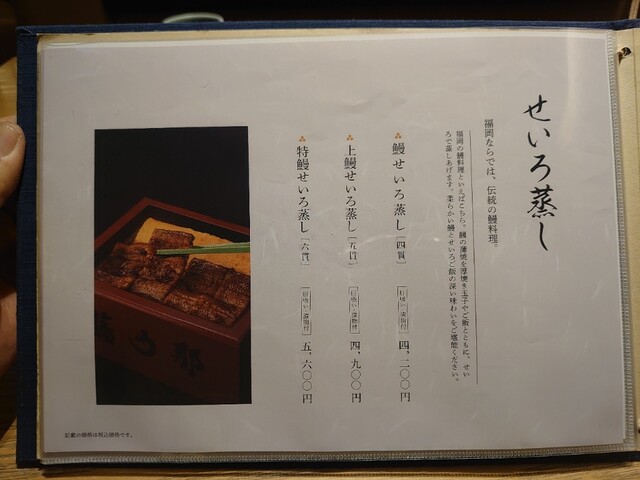 せいろ蒸し
福岡ならでは、伝統の鰻料理。
福岡の鰻料理といえばこちら。鰻の蒲焼を厚焼き玉子やご飯とともに、せい
ろで蒸しあげます。柔らかい鰻とせいろご飯の深い味わいをご堪能ください。
鰻せいろ蒸し［四貫］ 肝吸い・漬物付 四、二〇〇円
上鰻せいろ蒸し［五貫］ 肝吸い・漬物付 四、九〇〇円
特鰻せいろ蒸し［六貫］ 肝吸い・漬物付 五、六〇〇円
記載の価格は税込価格です。